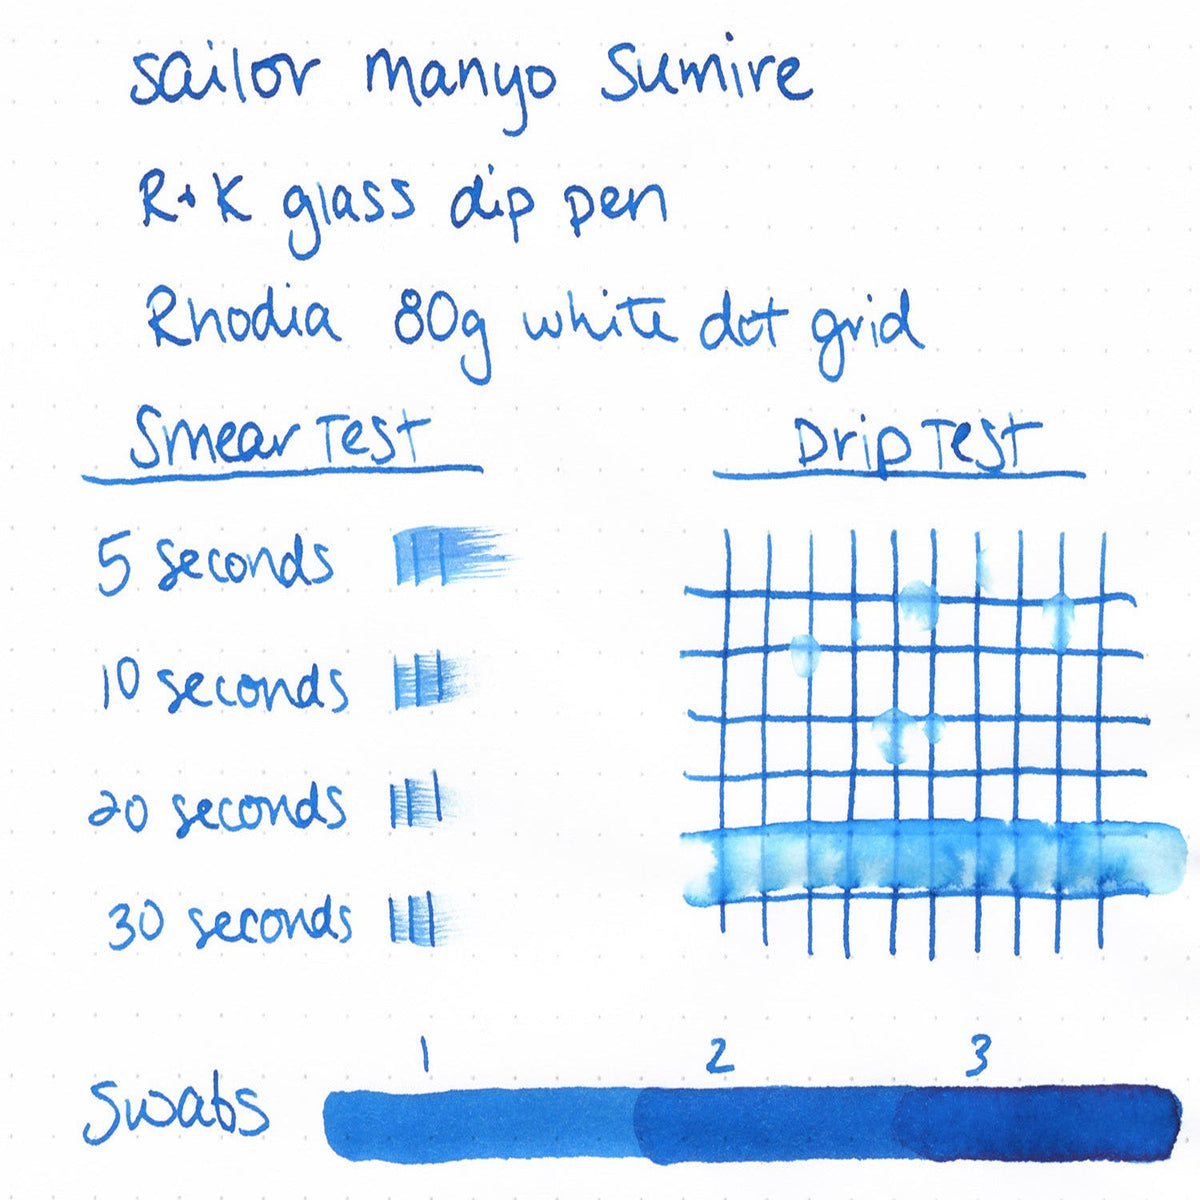 sailor manyo Sumire
R+K glass dip pen
Rhodia 80g white dot grid
Smear Test
Drip Test
5 seconds
10 seconds
20 seconds
30 seconds
1 2 3
Swabs